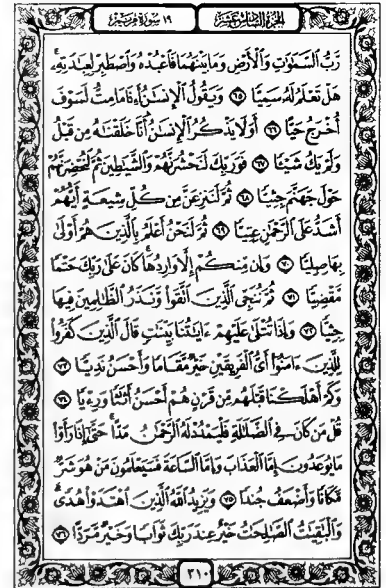 الجزء السادس عشر ١٩ سورة مريم
رَّبُّ ٱلسَّمَٰوَٰتِ وَٱلْأَرْضِ وَمَا بَيْنَهُمَا فَٱعْبُدْهُ وَٱصْطَبِرْ لِعِبَٰدَتِهِۦۚ
هَلْ تَعْلَمُ لَهُۥ سَمِيًّا ٦٥ وَيَقُولُ ٱلْإِنسَٰنُ أَءِذَا مَامِتُّ لَسَوْفَ
أُخْرَجُ حَيًّا ٦٦ أَوَلَا يَذْكُرُ ٱلْإِنسَٰنُ أَنَّا خَلَقْنَٰهُ مِن قَبْلُ
وَلَمْ يَكُ شَيْـًٔا ٦٧ فَوَرَبِّكَ لَنَحْشُرَنَّهُمْ وَٱلشَّيَٰطِينَ ثُمَّ لَنُحْضِرَنَّهُمْ
حَوْلَ جَهَنَّمَ جِثِيًّا ٦٨ ثُمَّ لَنَنزِعَنَّ مِن كُلِّ شِيعَةٍ أَيُّهُمْ
أَشَدُّ عَلَى ٱلرَّحْمَٰنِ عِتِيًّا ٦٩ ثُمَّ لَنَحْنُ أَعْلَمُ بِٱلَّذِينَ هُمْ أَوْلَىٰ
بِهَا صِلِيًّا ٧٠ وَإِن مِّنكُمْ إِلَّا وَارِدُهَاۚ كَانَ عَلَىٰ رَبِّكَ حَتْمًا
مَّقْضِيًّا ٧١ ثُمَّ نُنَجِّى ٱلَّذِينَ ٱتَّقَوا۟ وَّنَذَرُ ٱلظَّٰلِمِينَ فِيهَا
جِثِيًّا ٧٢ وَإِذَا تُتْلَىٰ عَلَيْهِمْ ءَايَٰتُنَا بَيِّنَٰتٍ قَالَ ٱلَّذِينَ كَفَرُوا۟
لِلَّذِينَ ءَامَنُوٓا۟ أَىُّ ٱلْفَرِيقَيْنِ خَيْرٌ مَّقَامًا وَأَحْسَنُ نَدِيًّا ٧٣
وَكَمْ أَهْلَكْنَا قَبْلَهُم مِّن قَرْنٍ هُمْ أَحْسَنُ أَثَٰثًا وَرِءْيًا ٧٤
قُلْ مَن كَانَ فِى ٱلضَّلَٰلَةِ فَلْيَمْدُدْ لَهُ ٱلرَّحْمَٰنُ مَدًّاۚ حَتَّىٰٓ إِذَا رَأَوْا۟
مَا يُوعَدُونَ إِمَّا ٱلْعَذَابَ وَإِمَّا ٱلسَّاعَةَ فَسَيَعْلَمُونَ مَنْ هُوَ شَرٌّ
مَّكَانًا وَأَضْعَفُ جُندًا ٧٥ وَيَزِيدُ ٱللَّهُ ٱلَّذِينَ ٱهْتَدَوْا۟ هُدًىۗ
وَٱلْبَٰقِيَٰتُ ٱلصَّٰلِحَٰتُ خَيْرٌ عِندَ رَبِّكَ ثَوَابًا وَخَيْرٌ مَّرَدًّا ٧٦
٣١٠